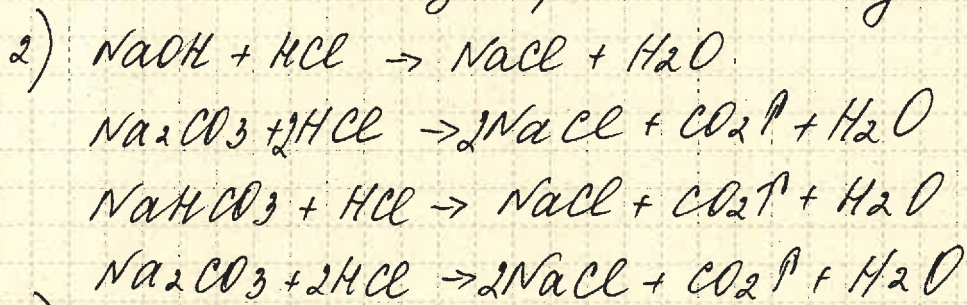 2) NaOH + HCl → NaCl + H2O
Na2CO3 + 2HCl → 2NaCl + CO2↑ + H2O
NaHCO3 + HCl → NaCl + CO2↑ + H2O
Na2CO3 + 2HCl → 2NaCl + CO2↑ + H2O